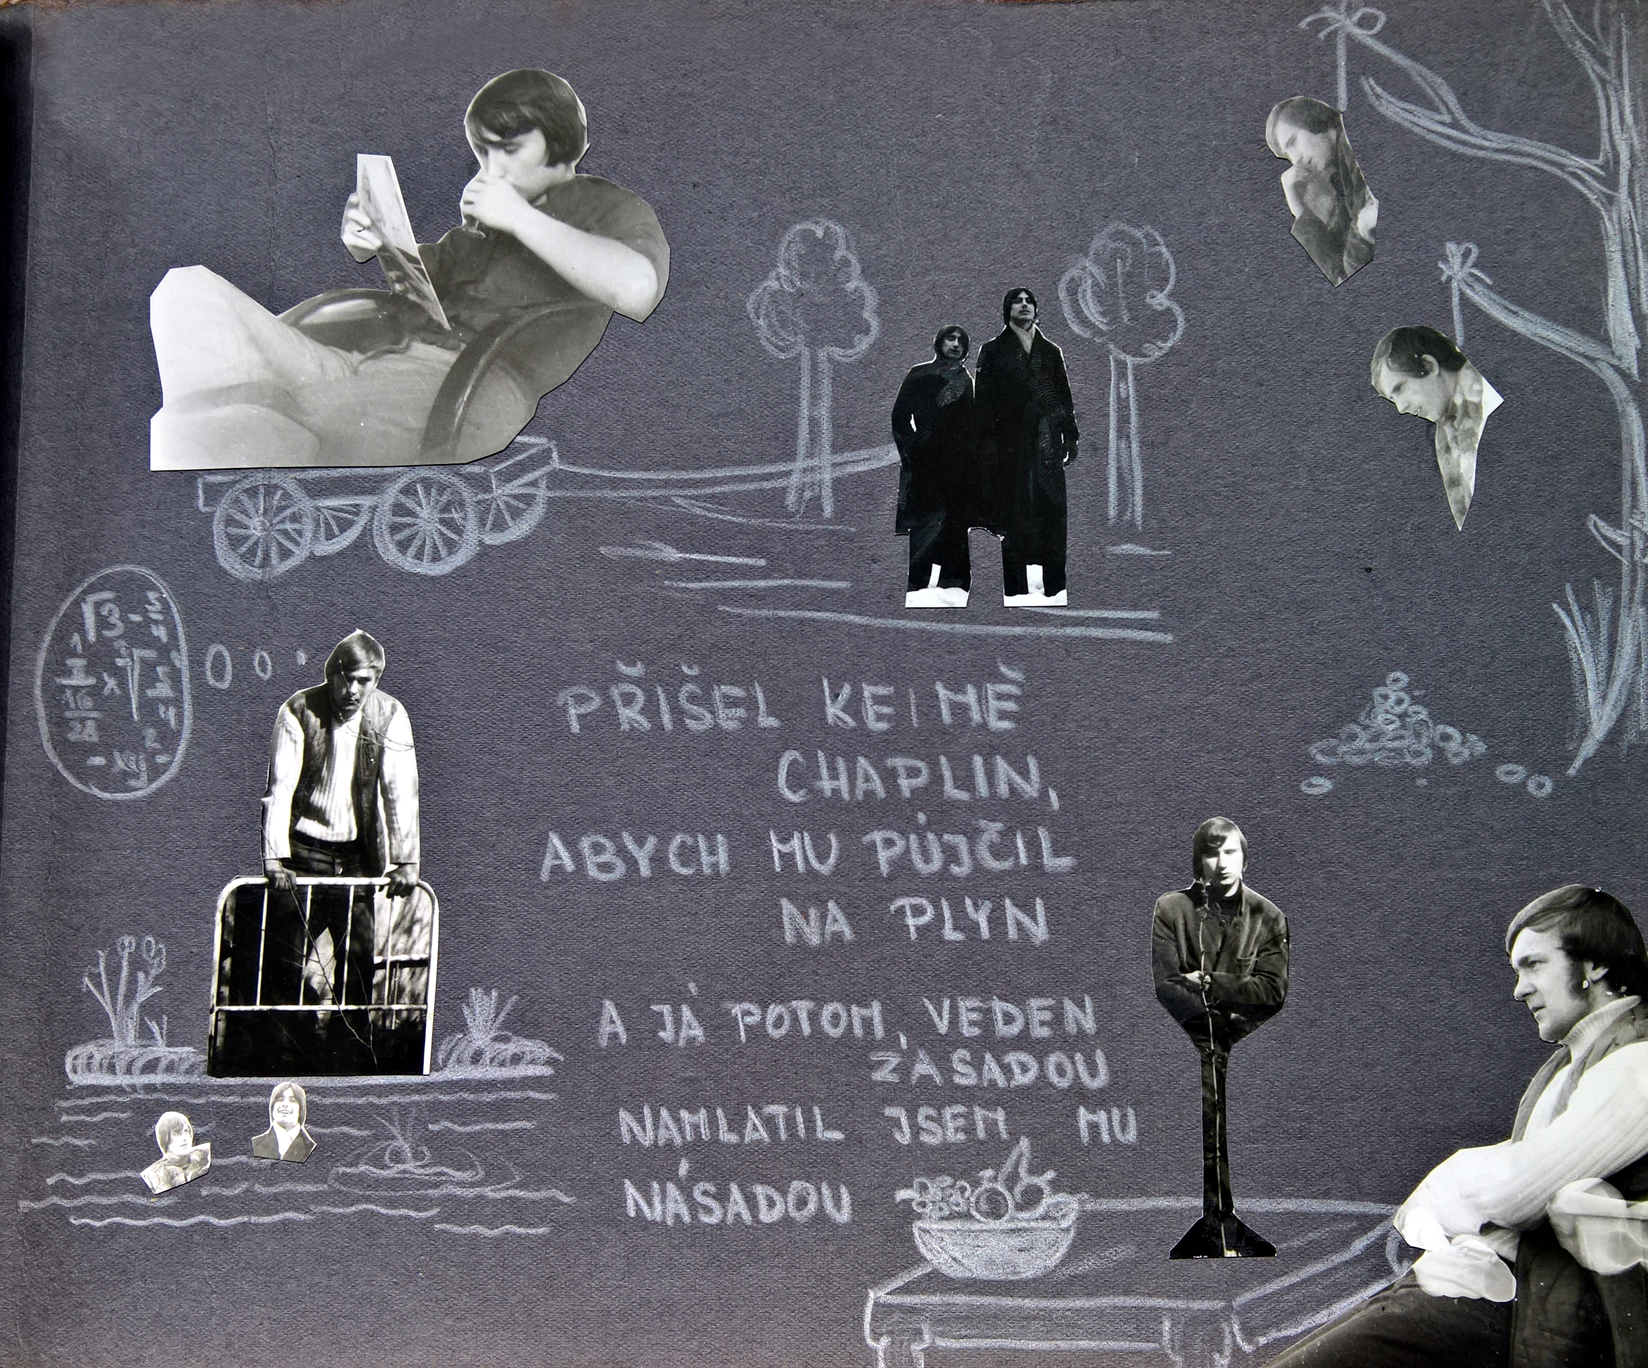 PŘIŠEL KE MĚ
CHAPLIN,
ABYCH MU PŮJČIL
NA PLYN
A JÁ POTOM, VEDEN
ZÁSADOU
NAMLATIL JSEM MU
NÁSADOU